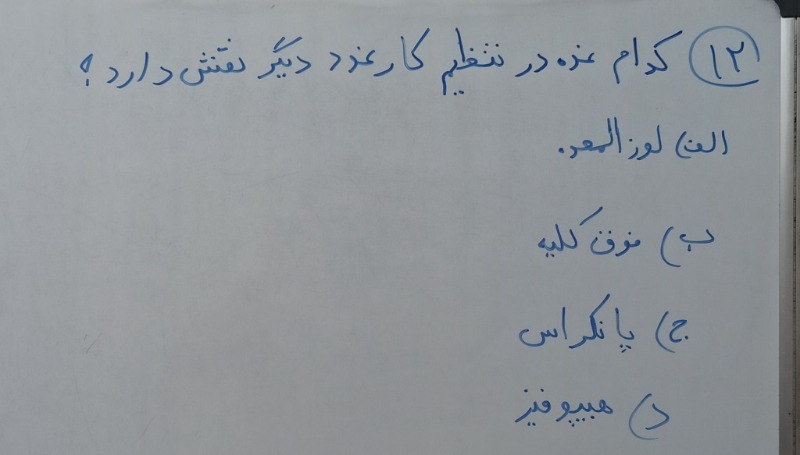 ۱۲ کدام غده در تنظیم کار غدد دیگر نقش دارد؟
الف) لوزالمعده
ب) فوق کلیه
ج) پانکراس
د) هیپوفیز